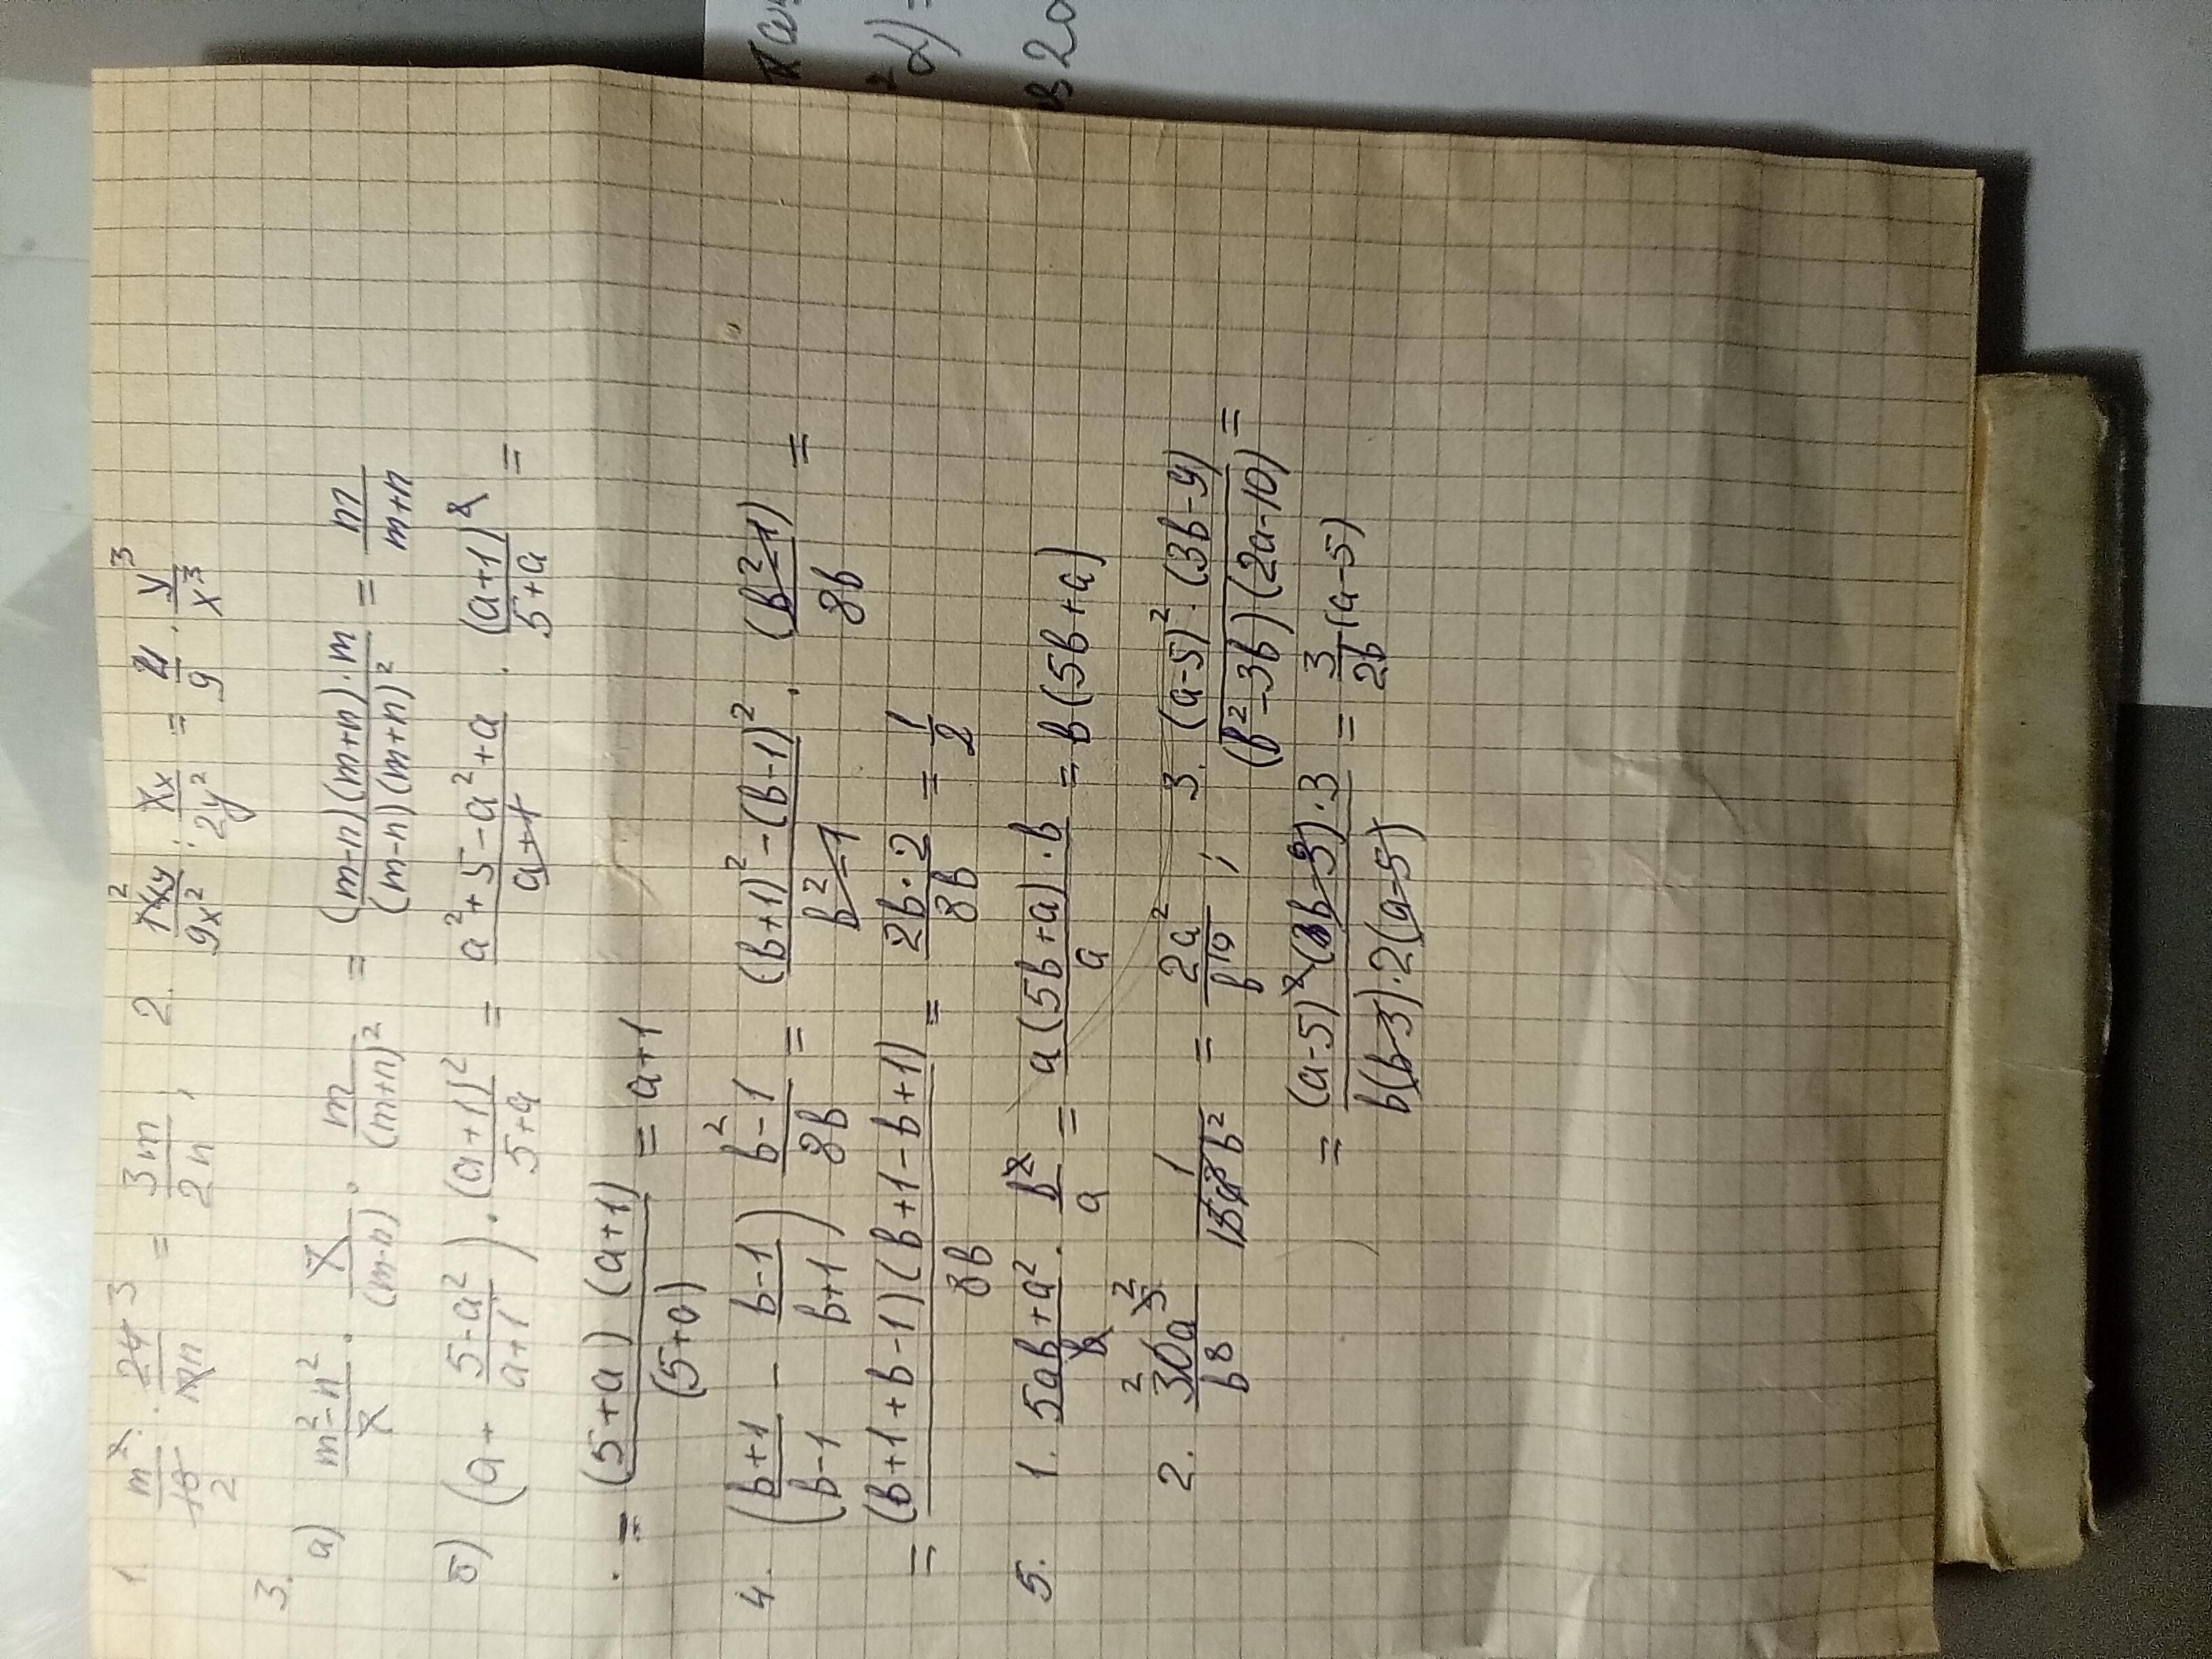 1. m²/16 · 24 3/mn = 3m/2n ; 2. xy/9x² · xx/2y² = 2/9 · y³/x³
2
3.
а) m²-n²/7 · 7/(m-n) · m/(m+n)² = (m-n)(m+n)·m/(m-n)(m+n)² = m/m+n
б) (a + 5-a²/a+1) · (a+1)²/5+a = a²+5-a²+a/a+1 · (a+1)²/5+a =
= (5+a)(a+1)/(5+a) = a+1
4. (b+1/b-1 - b-1/b+1) b²-1/8b = (b+1)²-(b-1)²/b²-1 · (b²-1)/8b =
= (b+1+b-1)(b+1-b+1)/8b = 2b·2/8b = 1/2
5. 1. 5ab+a²/b · b²/a = a(5b+a)·b/a = b(5b+a)
2. 30a³/b⁸ 1/15ab² = 2a²/b¹⁰ ; 3. (a-5)²·(3b-9)/(b²-3b)(2a-10) =
= (a-5)²(b-3)·3/b(b-3)·2(a-5) = 3/2b (a-5)